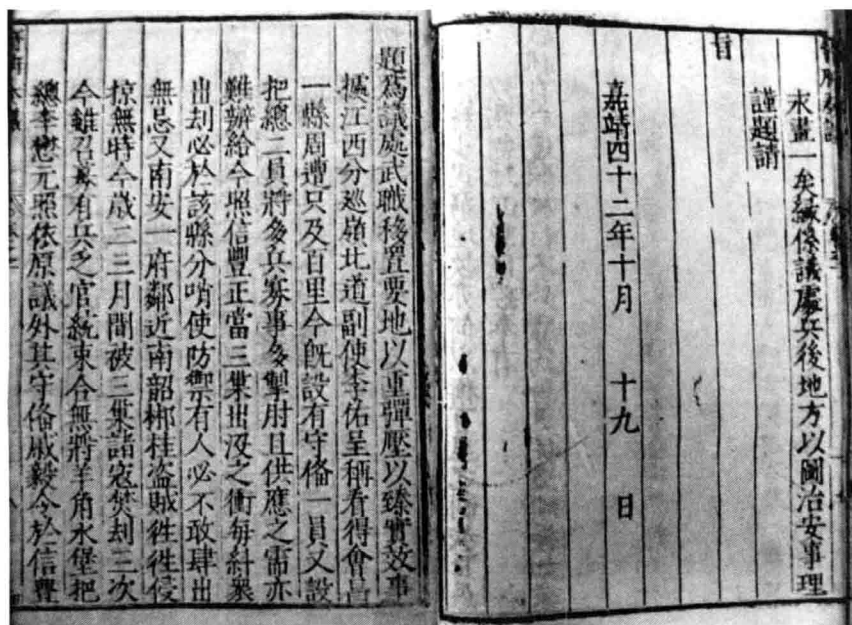 末畫一矣緣係議處兵後地方以圖治安事理
謹題請
旨
嘉靖四十二年十月 十九 日
題為議處武職移置要地以重彈壓以臻實效事
據江西分巡嶺北道副使李佑呈稱看得會昌
一縣周遭只及百里今既設有守俻一員又設
把總二員將多兵寡事多掣肘且供應之需亦
難辦給今照信豐正當三巢出沒之衝每糾衆
出刼必於該縣分哨使防禦有人必不敢肆出
無忌又南安一府鄰近南韶郴桂盗賊徃徃侵
掠無時今歲二三月間被三巢諸寇焚刼三次
今雖召募有兵乏官統束合無將羊角水堡把
總李懋元照依原議外其守俻戚毅今於信豐